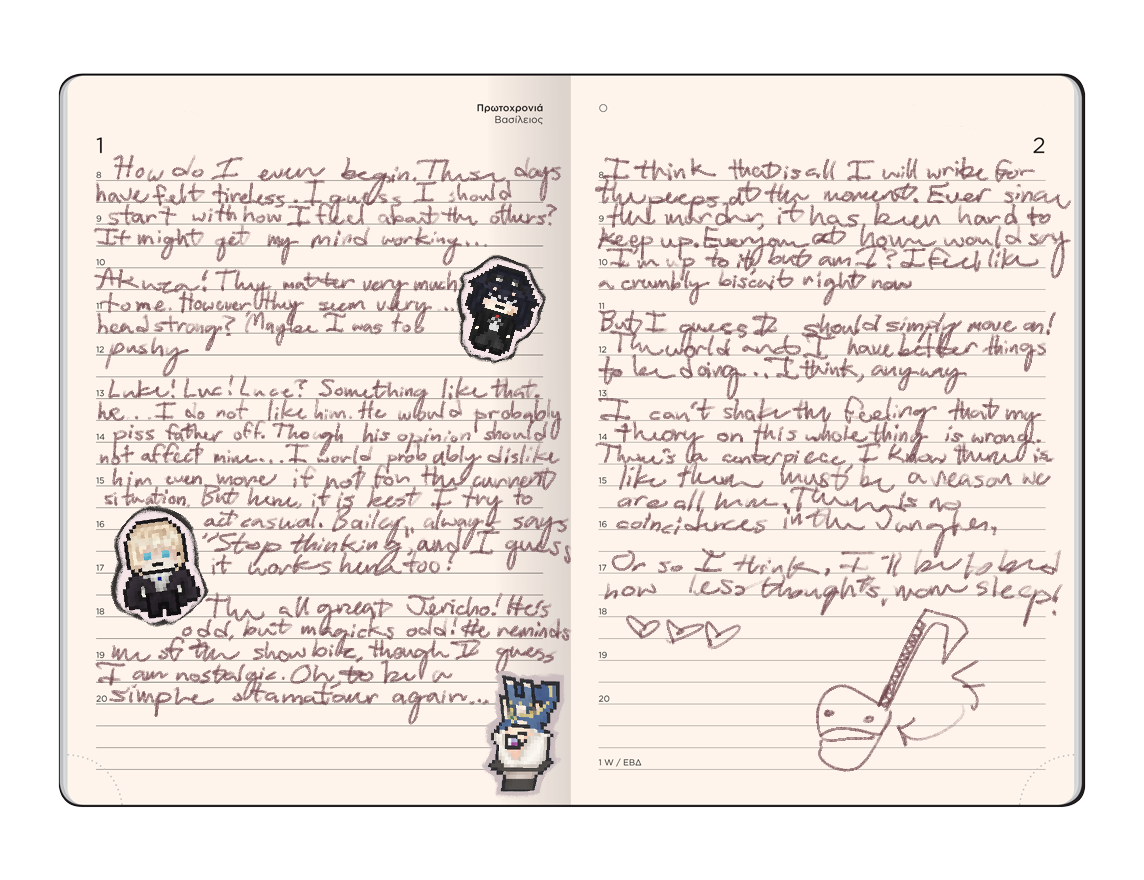 Πρωτοχρονιά
Βασίλειος
1
8
How do I even begin. These days
have felt tireless. I guess I should
9
start with how I feel about the others?
It might get my mind working...
10
Akuza! They matter very much
11
to me. However they seem very ...
headstrong? Maybe I was too
12
pushy
13
Luke! Luc! Luce? Something like that.
he... I do not like him. He would probably
14
piss father off. Though his opinion should
not affect mine.... I would probably dislike
15
him even more if not for the current
situation. But here, it is best I try to
16
act casual. Bailey, always says
"Stop thinking", and I guess
17
it works here too!
18
The all great Jericho! He's
odd, but magicks odd! He reminds
19
me of the showbiz, though I guess
I am nostalgic. Oh, to be a
20
simple amatour again...
2
8
I think that is all I will write for
the peeps at the moment. Ever since
9
the murder, it has been hard to
keep up. Everyone at houm would say
10
I'm up to it, but am I? I feel like
a crumbly biscait right now
11
But I guess I should simply move on!
12
The world and I have better things
to be doing... I think, anyway
13
I can't shake the feeling that my
14
theory on this whole thing is wrong.
There's a centerpiece, I know there is
15
like there must be a reason we
are all here. There is no
16
coincidences in the Junghen,
17
Or so I think, I'll be to bed
now less thoughts, more sleep!
18
19
20
1 W / ΕΒΔ